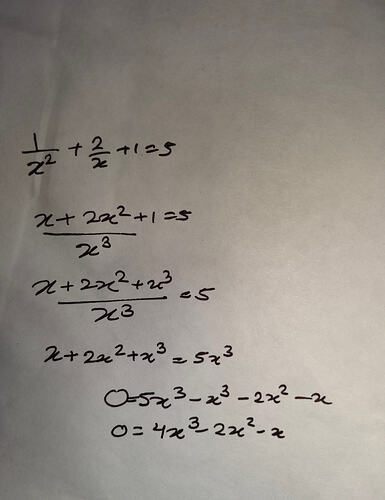 1/x² + 2/x + 1 = 5
(x + 2x²)/x³ + 1 = 5
(x + 2x² + x³)/x³ = 5
x + 2x² + x³ = 5x³
0 = 5x³ - x³ - 2x² - x
0 = 4x³ - 2x² - x